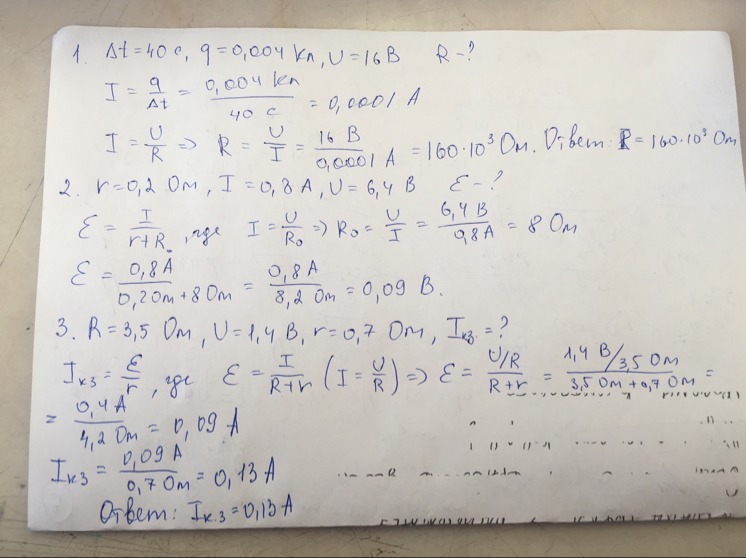 1. Δt=40 с, q=0,004 Кл, U=16 В R-?
I = q/Δt = 0,004 Кл/40 с = 0,0001 А
I = U/R => R = U/I = 16 В/0,0001 А = 160·10³ Ом. Ответ: R=160·10³ Ом
2. r=0,2 Ом, I=0,8 А, U=6,4 В ℰ-?
ℰ = I/r+R₀, где I = U/R₀ => R₀ = U/I = 6,4 В/0,8 А = 8 Ом
ℰ = 0,8 А/0,2 Ом+8 Ом = 0,8 А/8,2 Ом = 0,09 В.
3. R=3,5 Ом, U=1,4 В, r=0,7 Ом, Iкз=?
Iкз = ℰ/r, где ℰ = I/R+r (I = U/R) => ℰ = U/R/R+r = 1,4 В/3,5 Ом/3,5 Ом+0,7 Ом =
= 0,4 А/4,2 Ом = 0,09 А
Iкз = 0,09 А/0,7 Ом = 0,13 А
Ответ: Iк.з=0,13 А